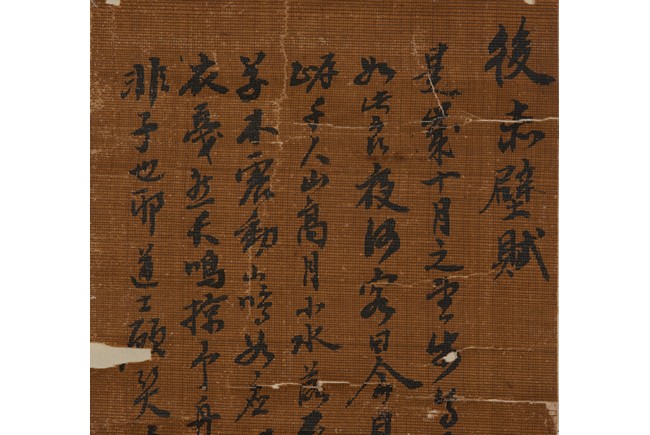 後赤壁賦
是歲十月之望步自
如此良夜何客曰今日
岸千尺山高月小水落
草木震動山鳴谷應
衣戛然長鳴掠予舟
非子也耶道士顧笑